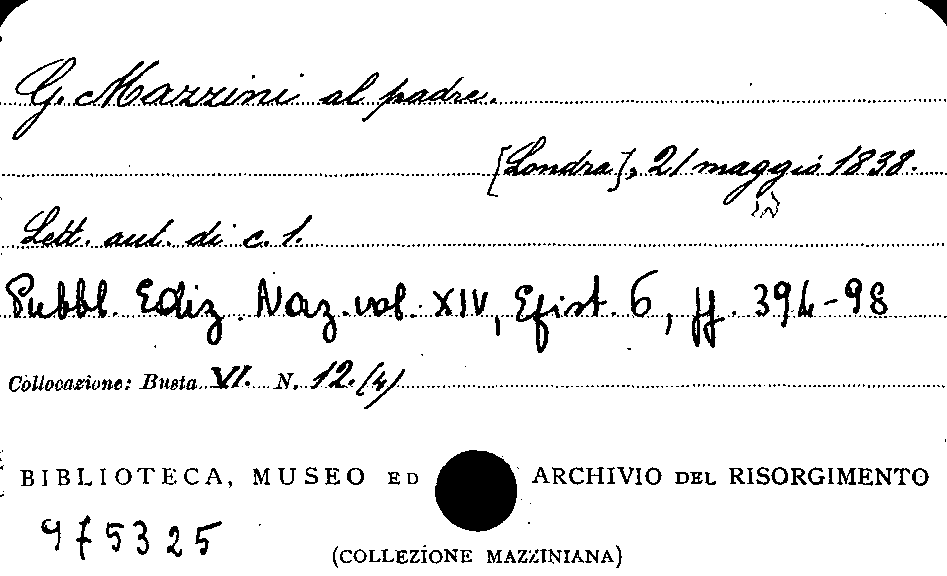 G. Mazzini al padre.
[Londra], 21 maggio 1838.
Lett. aut. di c. 1.
Pubbl. Ediz. Naz. vol. XIV, Epist. 6, pp. 394-98
Collocazione: Busta VI. N. 12.(4)
BIBLIOTECA, MUSEO ED ARCHIVIO DEL RISORGIMENTO
975325
(COLLEZIONE MAZZINIANA)